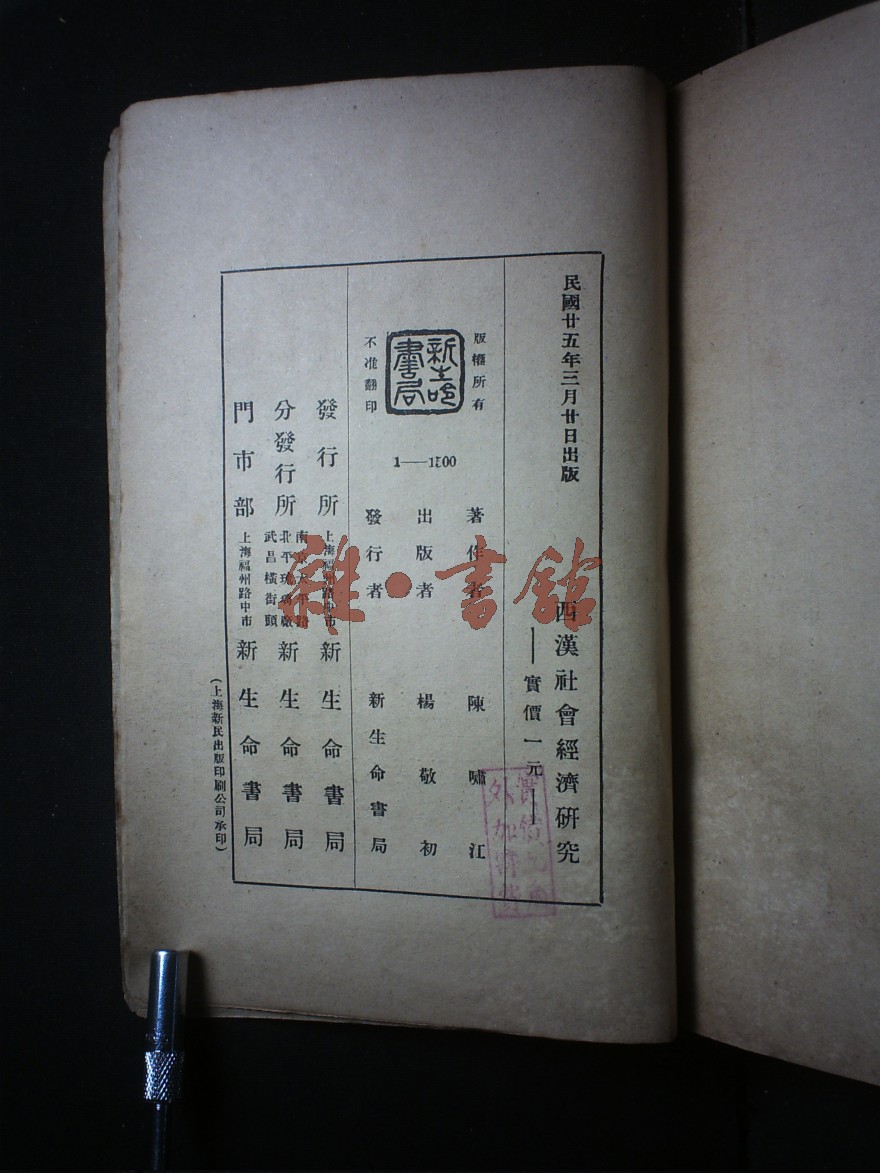 民國廿五年三月廿日出版
西漢社會經濟研究
——實價一元——
版權所有
新生命書局
不准翻印
1——1500
著作者 陳嘯江
出版者 楊敬初
發行者 新生命書局
發行所 上海福州路中市 新生命書局
分發行所 南京太平路 北平琉璃廠 武昌橫街頭 新生命書局
門市部 上海福州路中市 新生命書局
(上海新民出版印刷公司承印)
外加寄費
雜·書館